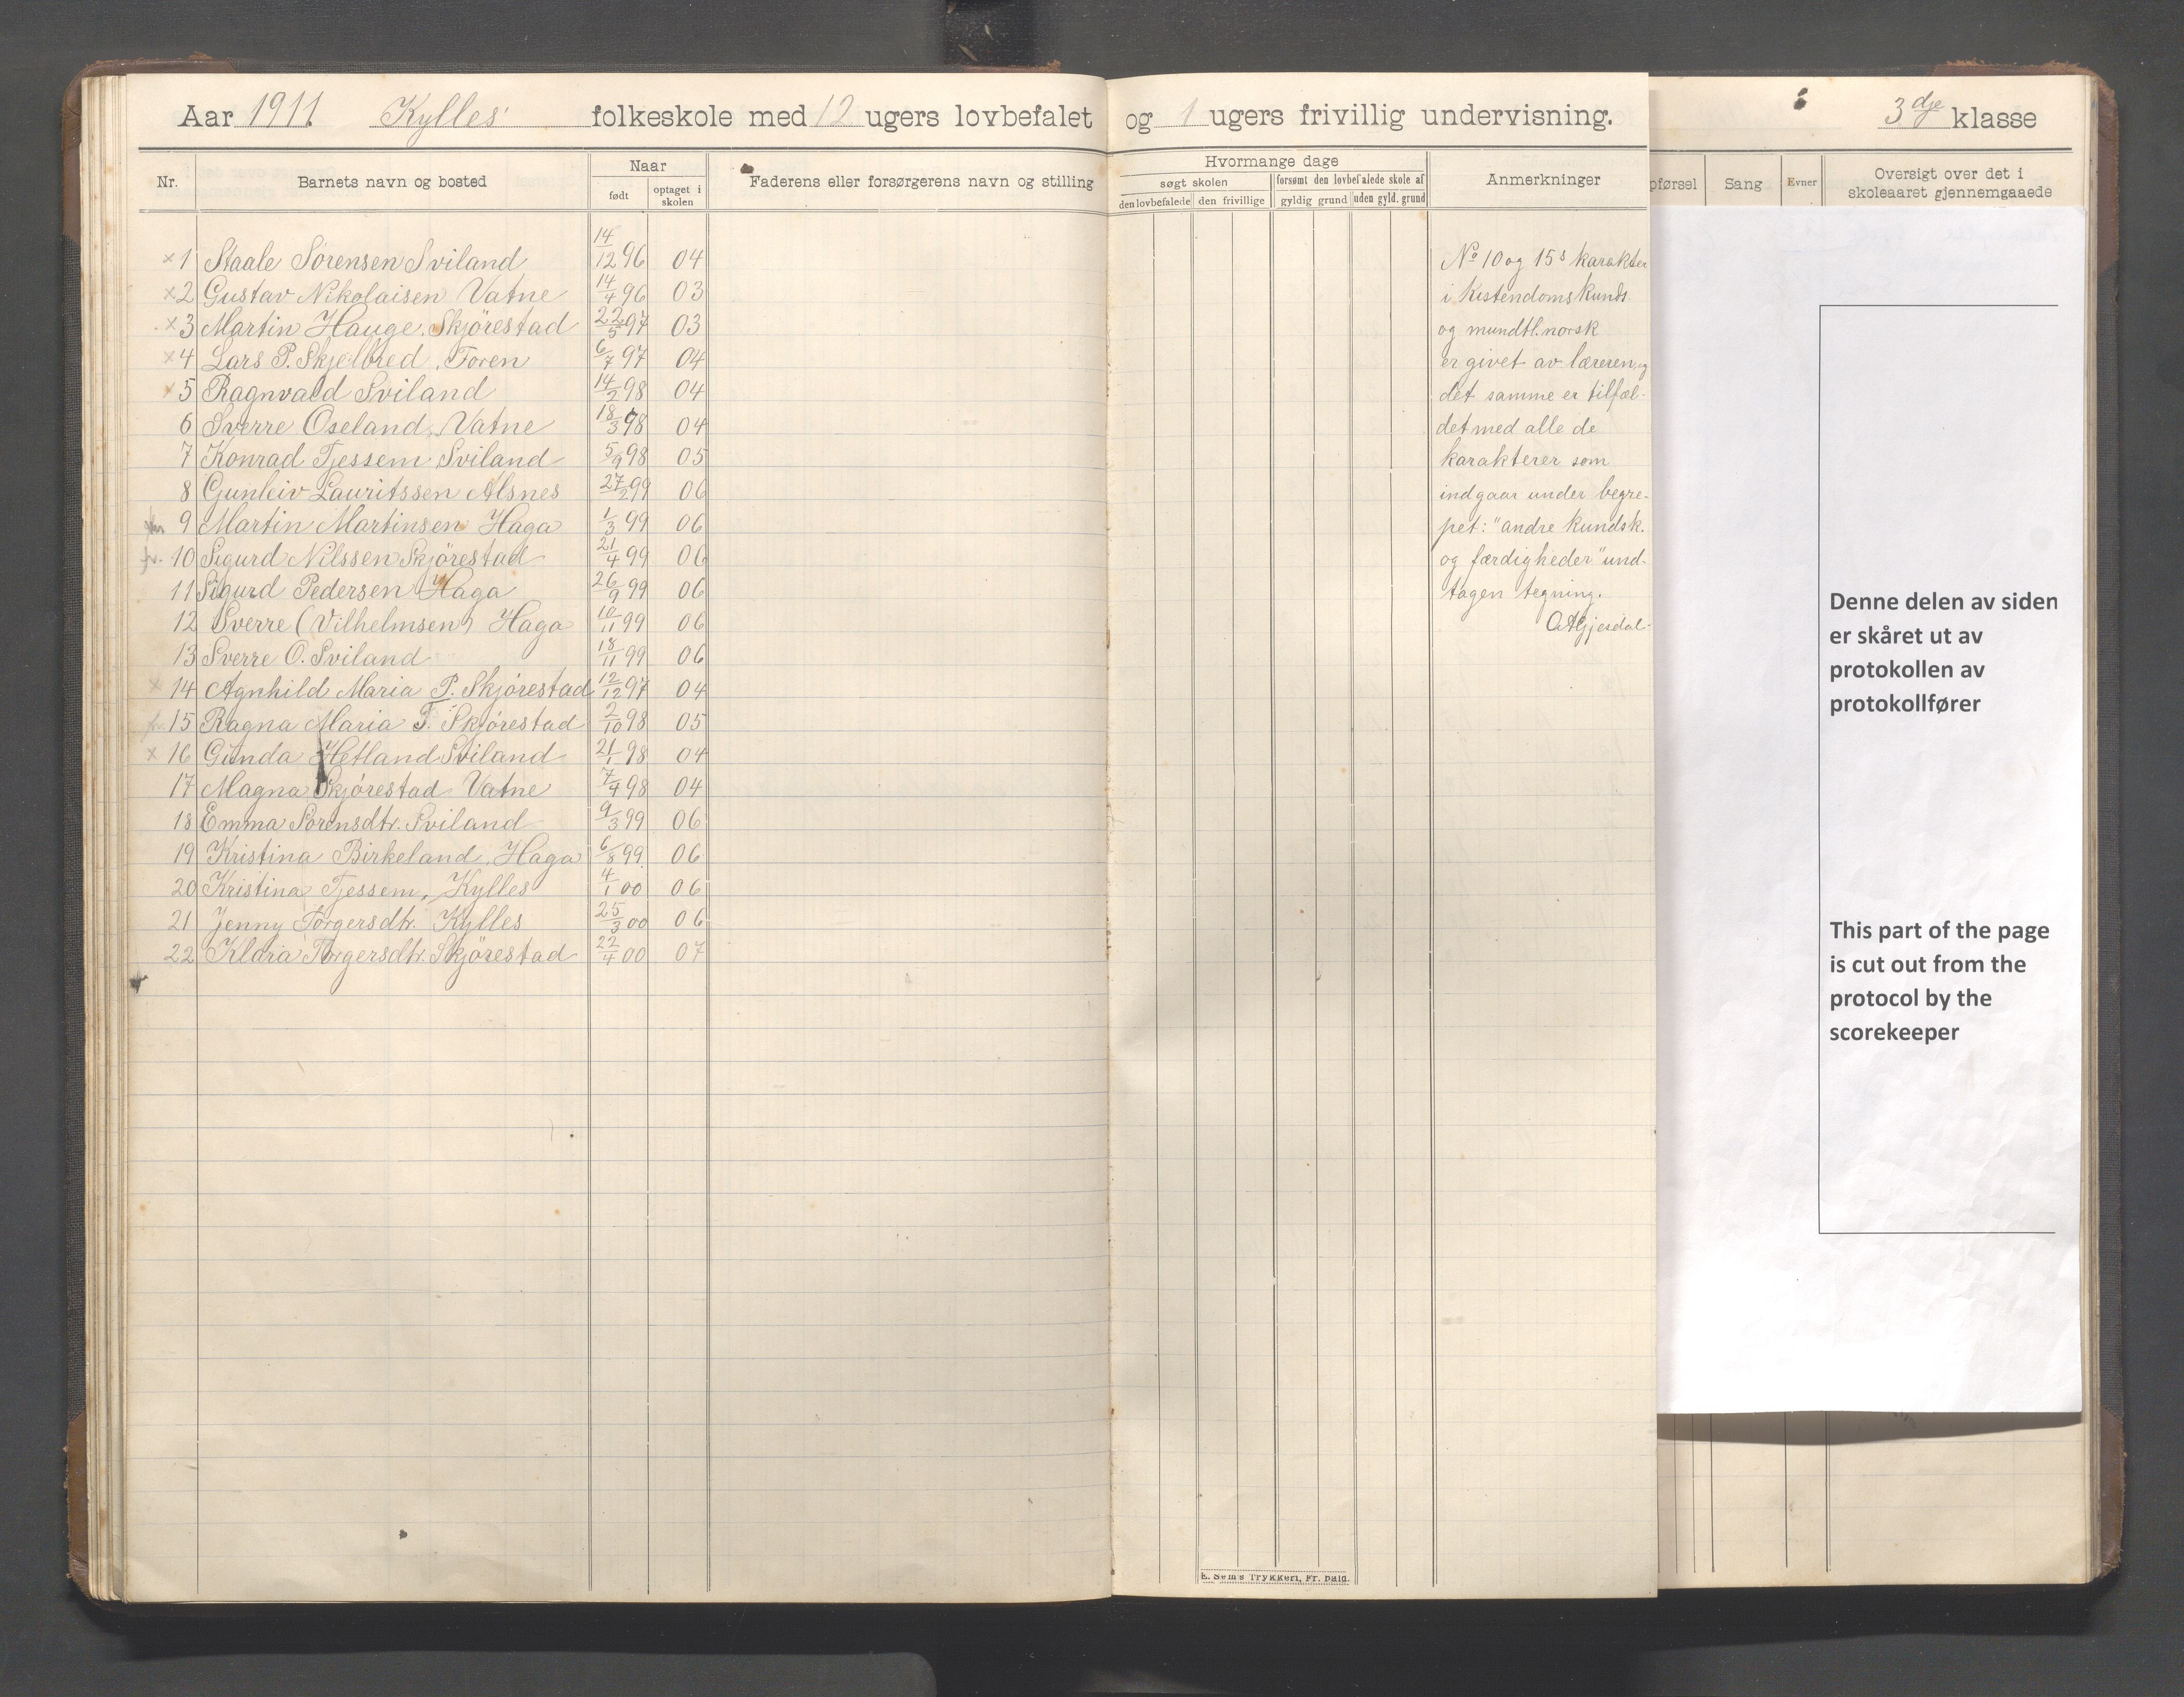 Aar 1911. Kylles folkeskole med 12 ugers lovbefalet og 1 ugers frivillig undervisning. 3dje klasse
Nr. Barnets navn og bosted Naar født optaget i skolen Faderens eller forsørgerens navn og stilling
Hvormange dage
søgt skolen forsømt den lovbefalede skole af
den lovbefalede den frivillige gyldig grund uden gyld. grund
Anmerkninger
pførsel Sang Evner Oversigt over det i
skoleaaret gjennemgaaede
x 1 Staale Sørensen Sviland 14/12 96 04
x 2 Gustav Nikolaisen Vatne 14/4 96 03
x 3 Martin Hauge, Skjørestad 22/5 97 03
x 4 Lars P. Skjelbred, Foren 6/7 97 04
x 5 Ragnvald Sviland 14/2 98 04
6 Sverre Oseland, Vatne 18/3 98 04
7 Konrad Tjessem Sviland 5/9 98 05
8 Gunleiv Lauritssen Alsnes 27/2 99 06
9 Martin Martinsen Haga 1/3 99 06
fr. 10 Sigurd Nilssen Skjørestad 21/4 99 06
11 Sigurd Pedersen Haga 26/9 99 06
12 Sverre (Vilhelmsen) Haga 10/11 99 06
13 Sverre O. Sviland 18/11 99 06
x 14 Agnhild Maria P. Skjørestad 12/12 97 04
fr. 15 Ragna Maria T. Skjørestad 2/10 98 05
x 16 Gunda Hetland Sviland 21/1 98 04
17 Magna Skjørestad Vatne 7/4 98 04
18 Emma Sørensdtr. Sviland 9/3 99 06
19 Kristina Birkeland, Haga 6/8 99 06
20 Kristina Tjessem, Kylles 4/1 00 06
21 Jenny Torgersdtr. Kylles 25/3 00 06
22 Klara Torgersdtr. Skjørestad 22/4 00 07
No 10 og 15s karakter
i Kistendomskunds.
og mundtl. norsk
er givet av læreren, og
det samme er tilfæl-
det med alle de
karakterer som
indgaar under begre-
pet: "andre kundsk.
og færdigheder" und-
tagen tegning.
OAGjesdal-
E. Sem's Trykkeri, Fr. hald.
Denne delen av siden
er skåret ut av
protokollen av
protokollfører
This part of the page
is cut out from the
protocol by the
scorekeeper